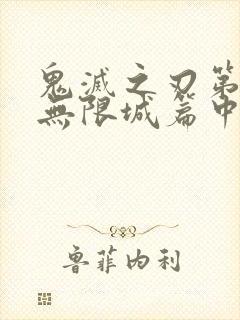 鬼滅之刃第
無限城篇中
魯菲內利